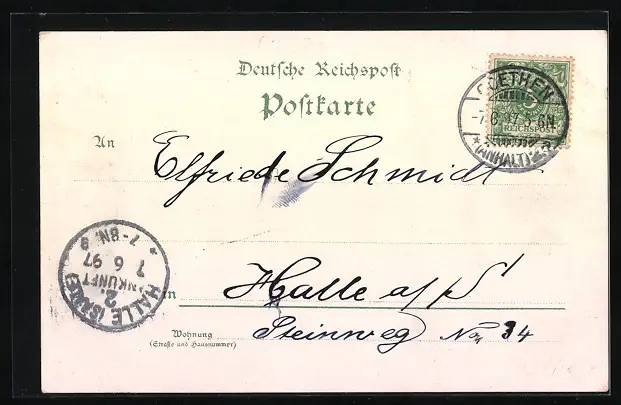 Deutsche Reichspost
Postkarte
COETHEN
-7.6.97.5-6N.
*(ANHALT)
REICHSPOST
An
Elfriede Schmidt
HALLE (SAALE)
2.
ANKUNFT
7 6 97
7-8N.
in Halle a/S
Wohnung
(Straße und Hausnummer)
Steinweg No 34